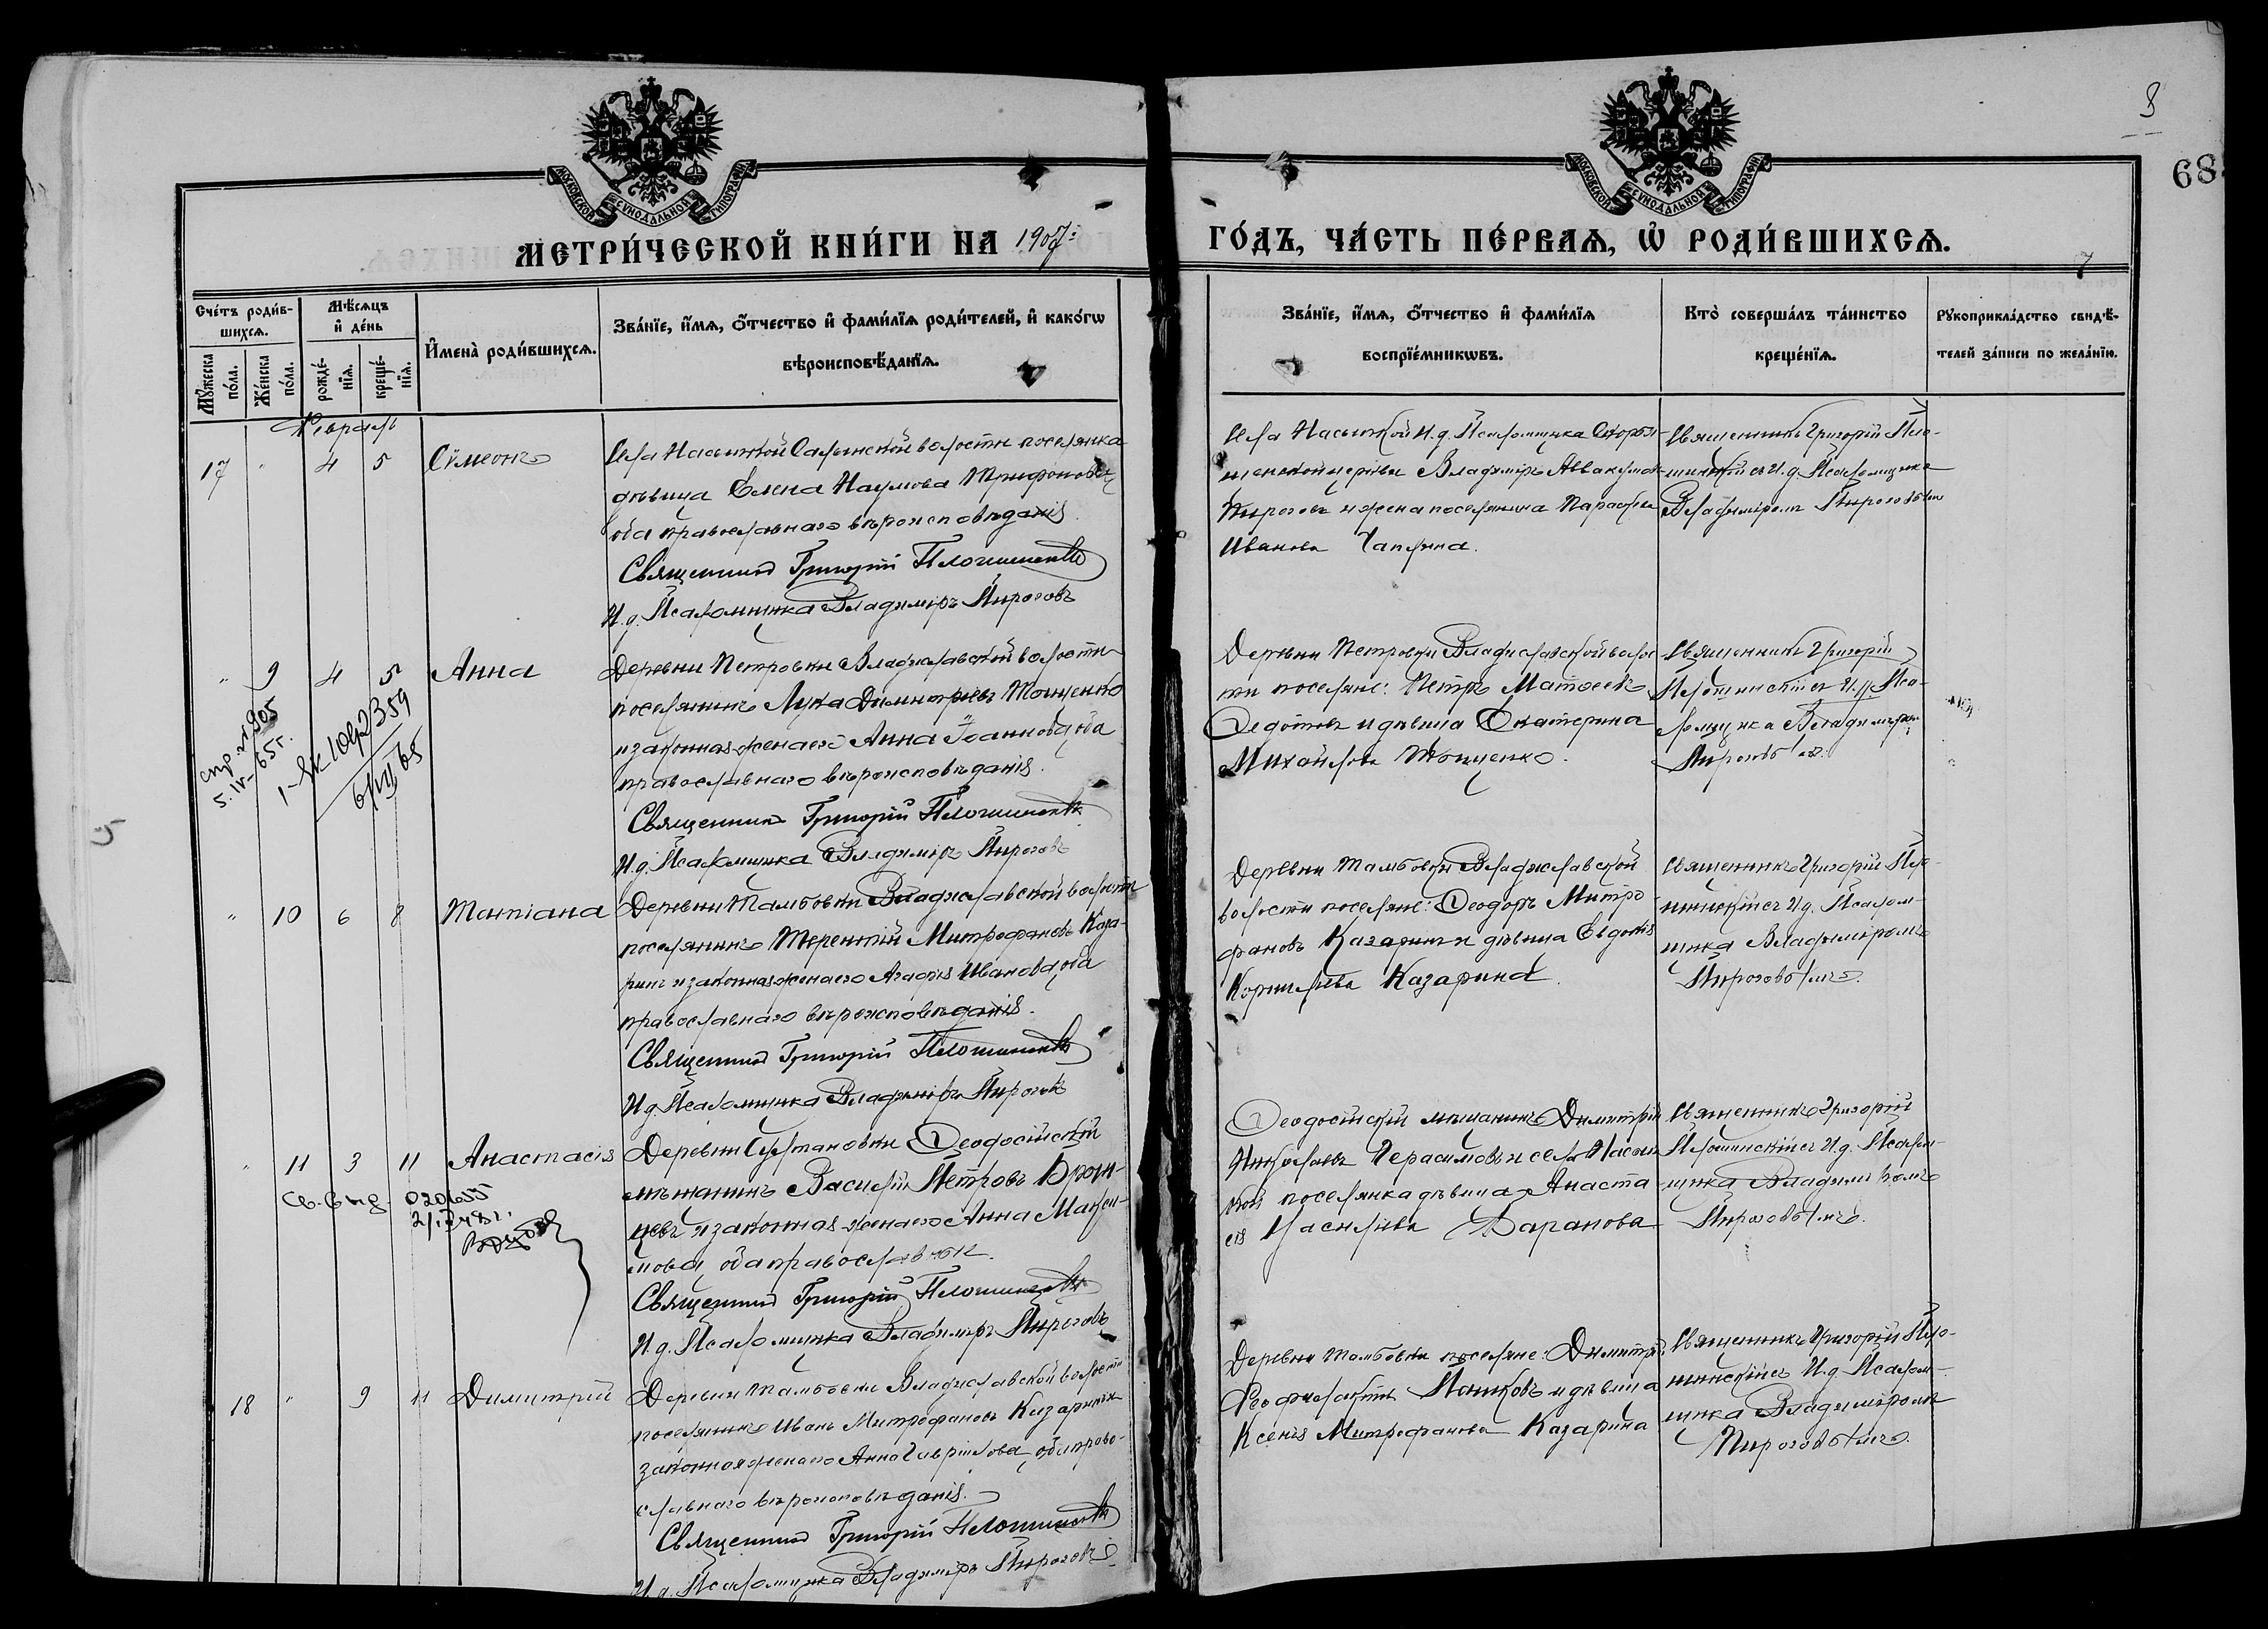 8
68
7
МОСКОВСКОЙ СѴНОДАЛЬНОЙ ТИПОГРАФІИ
МОСКОВСКОЙ СѴНОДАЛЬНОЙ ТИПОГРАФІИ
МЕТРИ́ЧЕСКОЙ КНИ́ГИ НА 1907:
ГО́ДЪ, ЧА́СТЬ ПЕ́РВАѦ, Ѡ҆ РОДИ́ВШИХСѦ.
Сче́тъ роди́в-
шихсѧ.
Мꙋ́жеска по́ла.
Же́нска по́ла.
Мѣ́сѧцъ
и҆ де́нь
рожде́-нїѧ.
креще́-нїѧ.
И҆мена̀ роди́вшихсѧ.
Зва́нїе, и҆́мѧ, ѻ҆́тчество и҆ фами́лїѧ роди́телей, и҆ како́гѡ
вѣроисповѣ́данїѧ.
Зва́нїе, и҆́мѧ, ѻ҆́тчество и҆ фами́лїѧ
воспрїе́мникѡвъ.
Кто̀ соверша́лъ та́инство
креще́нїѧ.
Рꙋкоприкла́дство свидѣ́-
телей за́писи по жела́нїю.
Февраль
17 " 4 5 Сѵмеонъ
Села Насыпкой Салынской волости поселянка
дѣвица Елена Наумова Трифонова,
оба православнаго вѣроисповѣданія.
Священникъ Григорій Плошинскій
И. д. Псаломщика Владиміръ Пироговъ
Села Насыпкой И. д. Псаломщика
церкви Владиміръ Аввакумовъ
Пироговъ и жена поселянина Параскева
Иванова Чаплина.
Священникъ Григорій Пло-
шинскій съ И. д. Псаломщика
Владиміромъ Пироговымъ
" 9 4 5 Анна
5. IV-65г.
Деревни Петровки Владиславской волости
поселянинъ Лука Димитріевъ Тощенко
и законная жена его Анна Іоаннова, оба
православнаго вѣроисповѣданія.
Священникъ Григорій Плошинскій
И. д. Псаломщика Владиміръ Пироговъ
Деревни Петровки Владиславской волос-
ти поселяне: Петръ Матвеевъ
Федотовъ и дѣвица Екатерина
Михайлова Тощенко.
Священникъ Григорій
Плошинскій съ И. д. Пса-
ломщика Владиміромъ
Пироговымъ.
" 10 6 8 Татіана
Деревни Тамбовки Владиславской волости
поселянинъ Терентій Митрофановъ Каза-
ринъ и законная жена его Агафія Иванова, оба
православнаго вѣроисповѣданія.
Священникъ Григорій Плошинскій
И. д. Псаломщика Владиміръ Пироговъ
Деревни Тамбовки Владиславской
волости поселяне: Феодоръ Митро-
фановъ Казаринъ и дѣвица Евдокія
Корнильева Казарина.
Священникъ Григорій Пло-
шинскій съ И. д. Псалом-
щика Владиміромъ
Пироговымъ.
" 11 3 11 Анастасія
Деревни Султановки Феодосійскій
мѣщанинъ Василій Петровъ
и законная жена его Анна Макси-
мова, оба православные.
Священникъ Григорій Плошинскій
И. д. Псаломщика Владиміръ Пироговъ
Феодосійскій мѣщанинъ Димитрій
Николаевъ Герасимовъ и села Насып-
кой поселянка дѣвица Анаста-
сія Васильева Баранова
Священникъ Григорій
Плошинскій съ И. д. Псалом-
щика Владиміромъ
Пироговымъ.
18 " 9 11 Димитрій
Деревни Тамбовки Владиславской волости
поселянинъ Иванъ Митрофановъ Казаринъ и
законная жена его Анна Гавріилова, оба право-
славнаго вѣроисповѣданія.
Священникъ Григорій Плошинскій
И. д. Псаломщика Владиміръ Пироговъ
Деревни Тамбовки поселяне: Димитрій
Феофилактовъ и дѣвица
Ксенія Митрофанова Казарина
Священникъ Григорій Пло-
шинскій съ И. д. Псалом-
щика Владиміромъ
Пироговымъ.